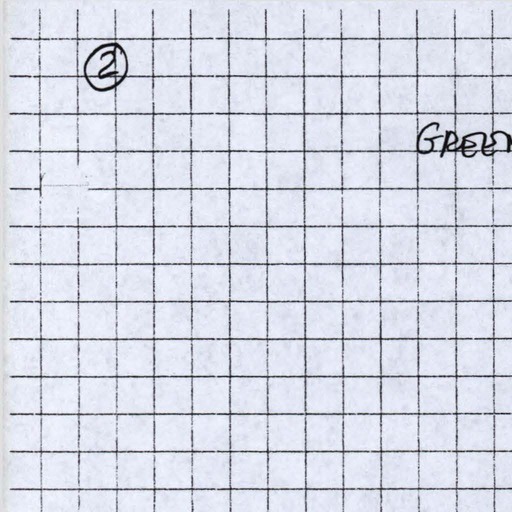 ②
GREEN